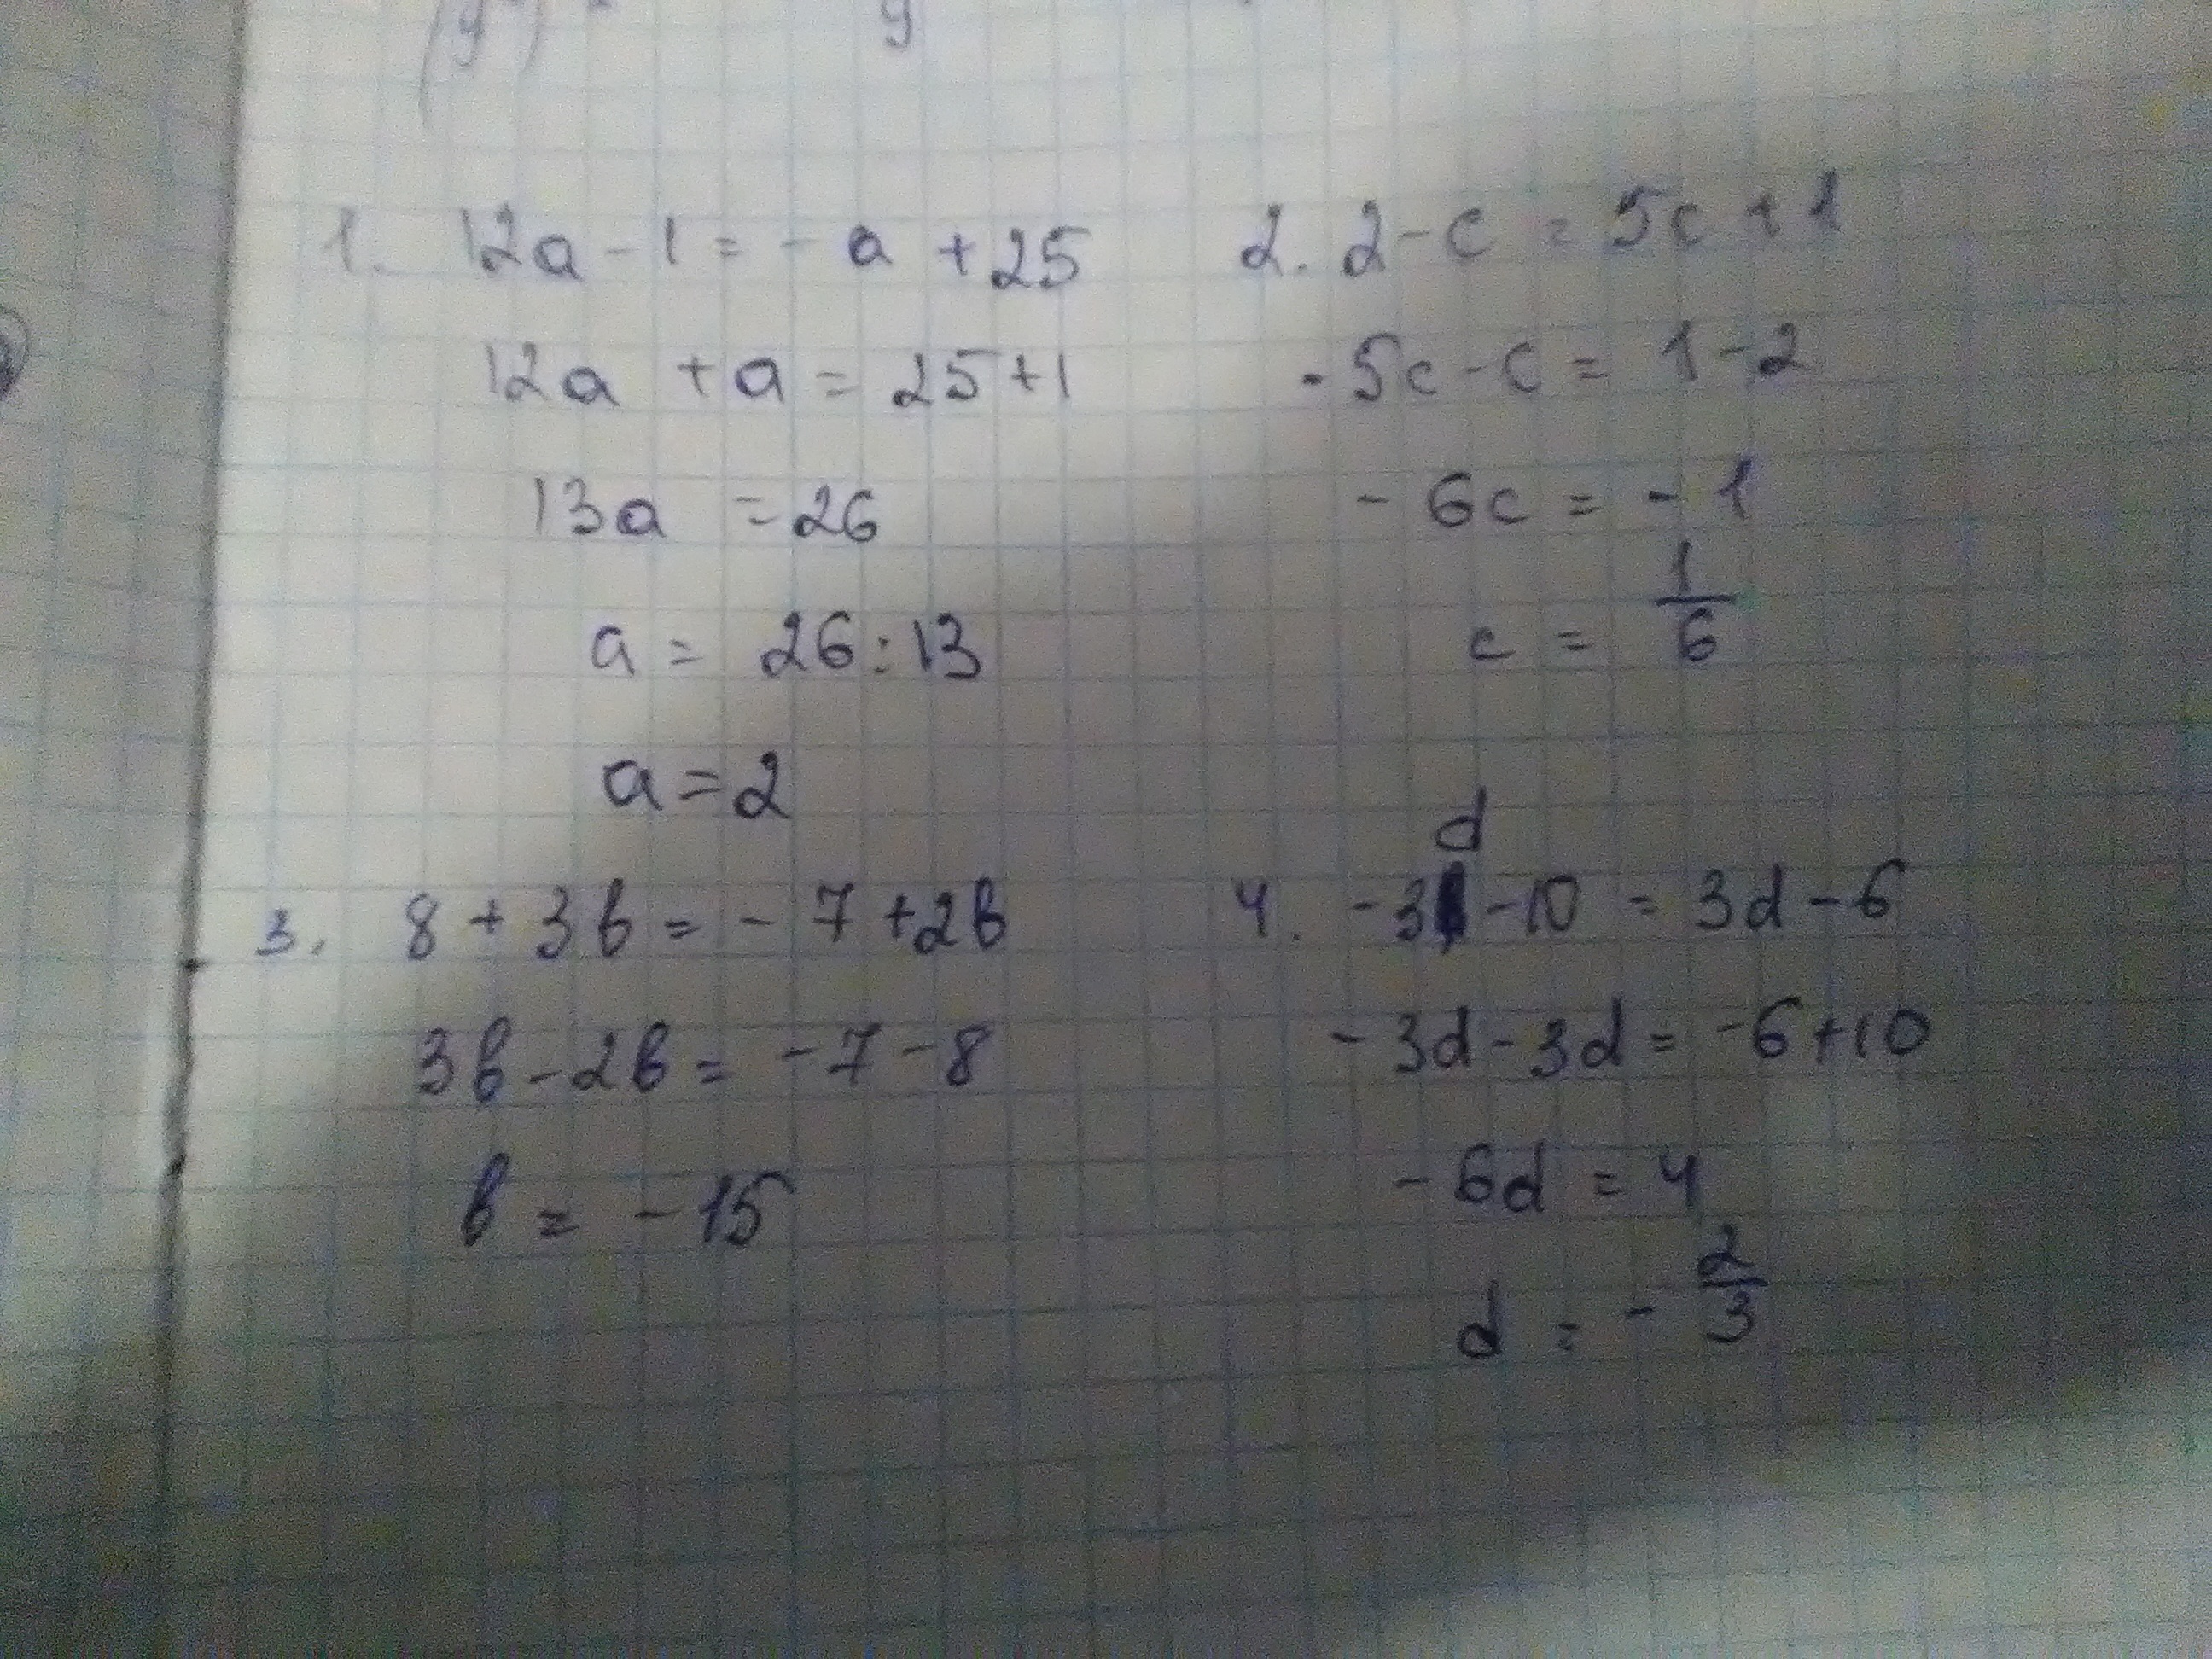 1. 12a - 1 = - a + 25
12a + a = 25 + 1
13a = 26
a = 26 : 13
a = 2
2. 2 - c = 5c + 1
- 5c - c = 1 - 2
- 6c = - 1
c = 1/6
3. 8 + 3b = - 7 + 2b
3b - 2b = - 7 - 8
b = - 15
d
4. - 3 - 10 = 3d - 6
- 3d - 3d = - 6 + 10
- 6d = 4
d = - 2/3